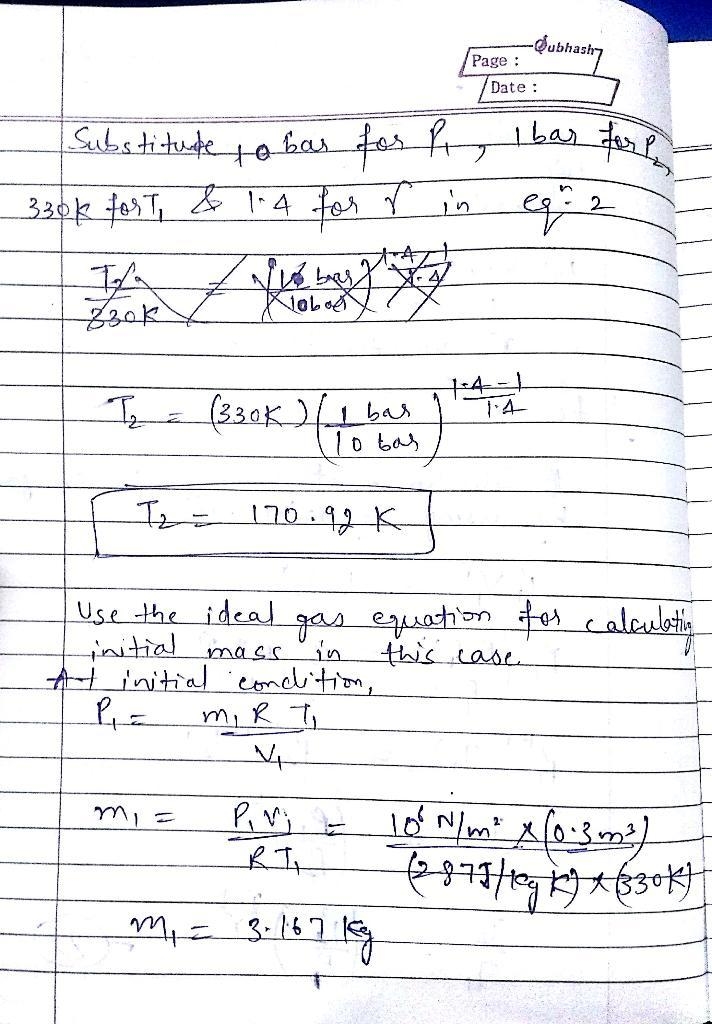 Subhash
Page :
Date :
Substitute 10 bar for P₁, 1 bar for P₂,
330K for T₁ & 1.4 for γ in eqⁿ: 2
T₂/330K = (1 bar/10 bar)^(1.4-1/1.4)
T₂ = (330K) (1 bar/10 bar)^(1.4-1/1.4)
T₂ = 170.92 K
Use the ideal gas equation for calculating
initial mass in this case.
At initial condition,
P₁ = m₁ R T₁/V₁
m₁ = P₁V₁/RT₁ = 10⁶ N/m² × (0.3 m³)/(287J/kg K) × (330K)
m₁ = 3.167 kg